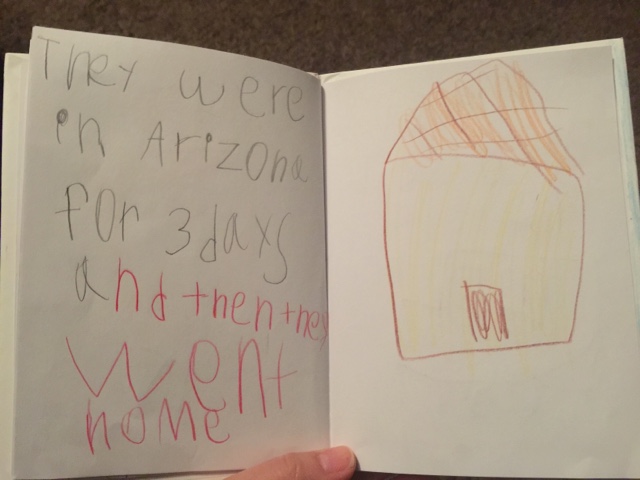 They were
in Arizona
for 3 days
and then they
went
home